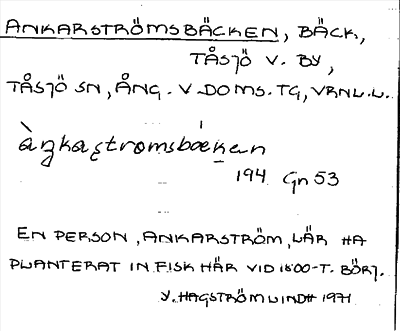 ANKARSTRÖMSBÄCKEN, BÄCK,
TÅSJÖ V. BY,
TÅSJÖ SN, ÅNG. V. DOMS. TG, VRNL.L.
àŋkaʂtrømsbækan
194 Gn 53
EN PERSON, ANKARSTRÖM, LÄR HA
PLANTERAT IN FISK HÄR VID 1800-T. BÖRJ.
Y. HAGSTRÖM LINDH 1971